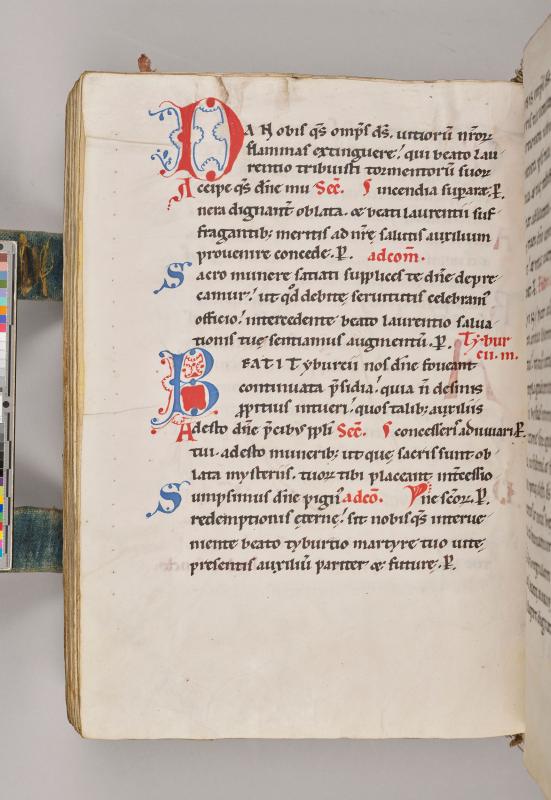 DA Nobis q̄s omp̄s d̄s. uitiorū n̄ror
flammas extinguere; qui beato lau
rentio tribuisti tormentorū suor
Accipe q̄s dn̄e mu Sēc. incendia suparare. P.
nera dignant oblata. & beati laurentii suf
fragantib; meritis ad nr̄e salutis auxilium
prouenire concede. P. ad com̄.
Sacro munere satiati supplices te dn̄e depre
camur; ut qd̄ debite seruitutis celebram
officio; intercedente beato laurentio salua
tionis tue sentiamus augmentū. P. Tybur
cii. m.
BEATI Tyburcii nos dn̄e foueant
continuata p̄sidia; quia n̄ desinis
p̱pitius intueri; quos talib; auxiliis
Adesto dn̄e p̄cib; ppli Sēc. concesseris adiuuari. P.
tui. adesto munerib; ut que sacris sunt ob
lata mysteriis. tuor tibi placeant int̄cessio
Sumpsimus dn̄e pign' ad cō. ne scōr. P.
redemptionis eterne; sit nobis q̄s interue
niente beato tyburtio martyre tuo uite
presentis auxiliū pariter & future. P.